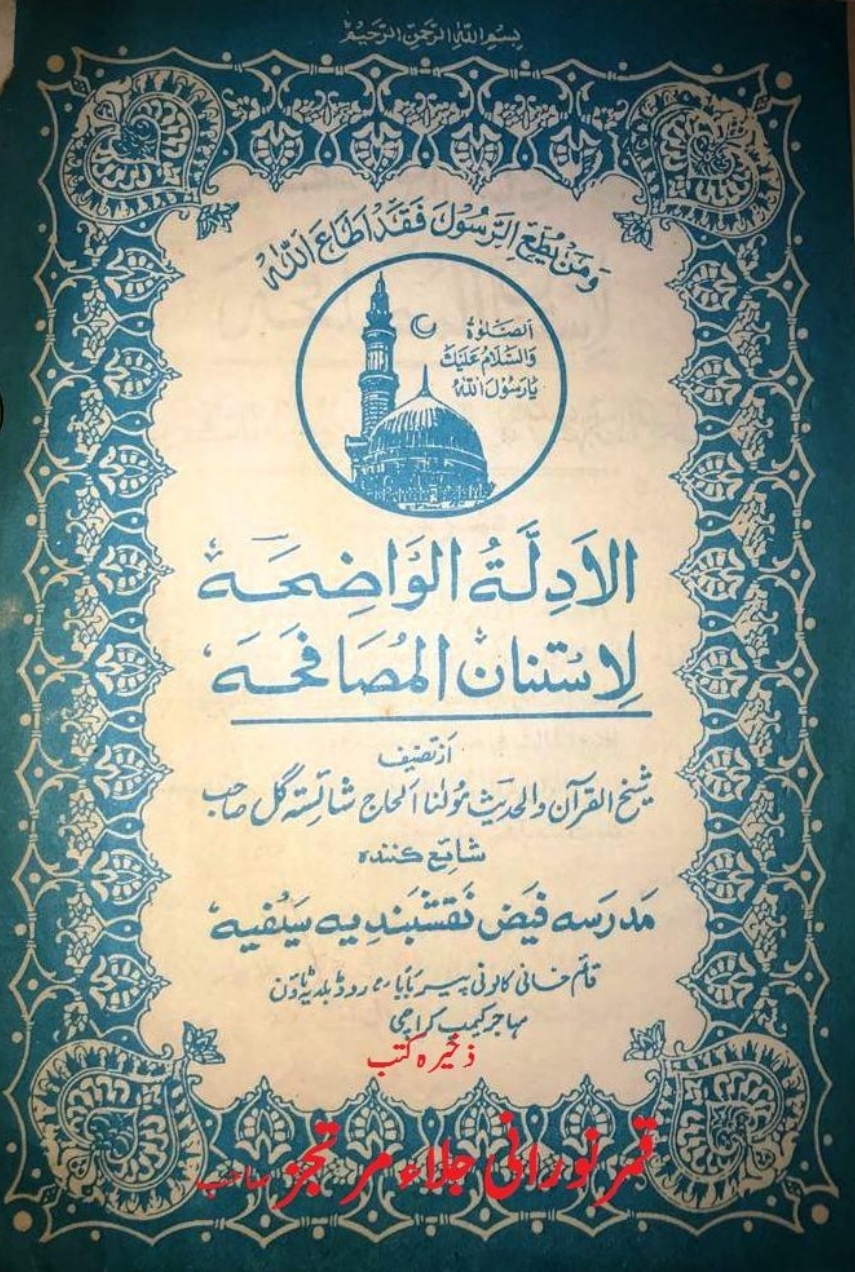 بِسْمِ اللّٰهِ الرَّحْمٰنِ الرَّحِيْمِ
وَمَنْ يُطِعِ الرَّسُوْلَ فَقَدْ اَطَاعَ اللّٰهَ
الصَّلٰوةُ
وَالسَّلَامُ عَلَيْكَ
يَارَسُوْلَ اللّٰهِ
الاَدِلَّةُ الوَاضِحَة
لِاسْتنان المُصَافَحَه
از تصنیف
شیخ القرآن والحدیث مولٰنا الحاج شائستہ گل صاحب
شایع کننده
مَدرَسه فیَض نَقشبَندیه سَیفیه
قائم خانی کالونی پیر بابا روڈ بلدیہ ٹاؤن
مہاجر کیمپ کراچی
ذخیرہ کتب
قمر نورانی جلاء مرتجز صاحب